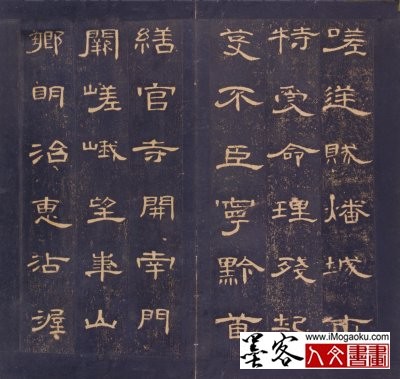 嗟逆賊燔城市
特受命理殘圮
芟不臣寧黔首
繕官寺開南門
闕嵯峨望華山
鄉明治惠沾渥
墨客
www.iMogaoku.com
人文書畫